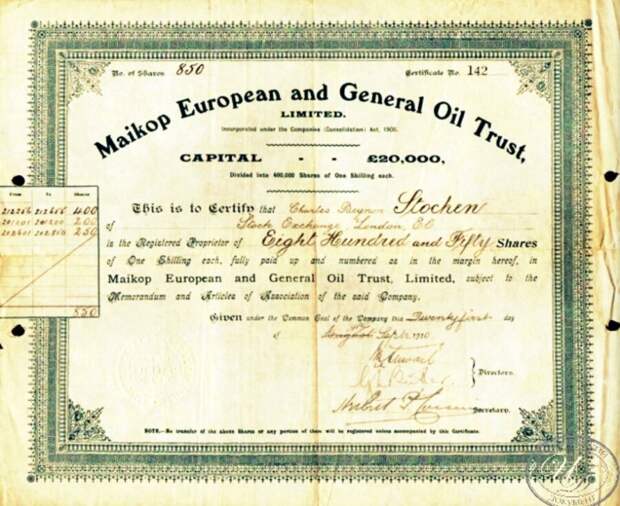 No. of Shares 850 Certificate No. 142
Maikop European and General Oil Trust,
LIMITED.
Incorporated under the Companies (Consolidation) Act, 1908.
CAPITAL - - £20,000,
Divided into 400,000 Shares of One Shilling each.
From To Shares
400
200
250
850
This is to Certify that Charles Stochen
of Stock Exchange London, EC
is the Registered Proprietor of Eight Hundred and Fifty Shares
of One Shilling each, fully paid up and numbered as in the margin hereof, in
Maikop European and General Oil Trust, Limited, subject to the
Memorandum and Articles of Association of the said Company.
Given under the Common Seal of the Company this Twenty first day
of August Sept 1910
Directors.
Secretary.
NOTE.-No transfer of the above Shares or any portion of them will be registered unless accompanied by this Certificate.